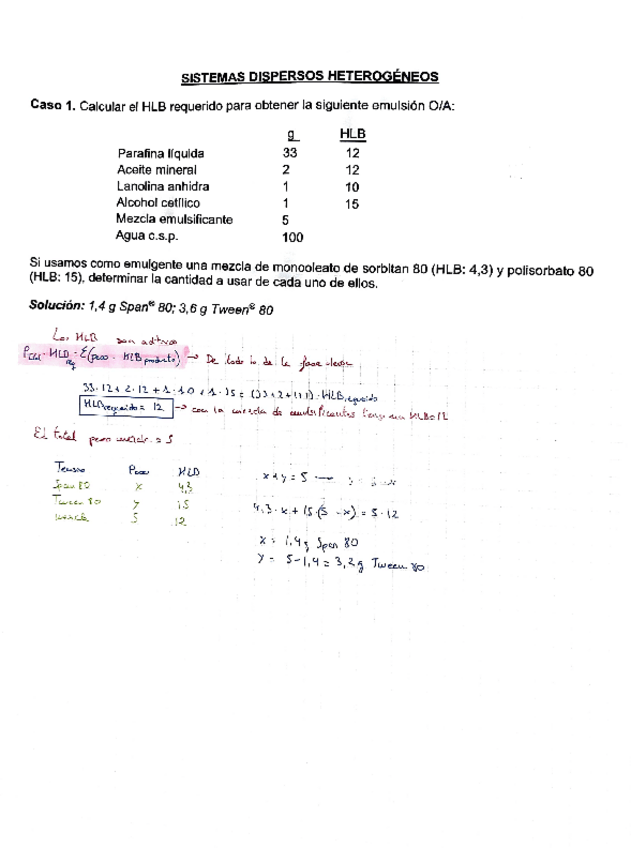 SISTEMAS DISPERSOS HETEROGÉNEOS
Caso 1. Calcular el HLB requerido para obtener la siguiente emulsión O/A:
g HLB
Parafina líquida 33 12
Aceite mineral 2 12
Lanolina anhidra 1 10
Alcohol cetílico 1 15
Mezcla emulsificante 5
Agua c.s.p. 100
Si usamos como emulgente una mezcla de monooleato de sorbitan 80 (HLB: 4,3) y polisorbato 80
(HLB: 15), determinar la cantidad a usar de cada uno de ellos.
Solución: 1,4 g Span® 80; 3,6 g Tween® 80
Los HLB son aditivos
HLB = Σ(peso · HLB producto) → De todo lo de la fase
33·12 + 2·12 + 1·10 + 1·15 = (33+2+1+1)·HLB requerido
HLB requerido = 12 → con la mezcla de emulsificantes tengo un HLB=12
El total peso = 5
Tenso Peso HLB
Span 80 x 4,3
Tween 80 y 15
5 12
x + y = 5
4,3·x + 15·(5 - x) = 5·12
x = 1,4 g Span 80
y = 5-1,4 = 3,2 g Tween 80